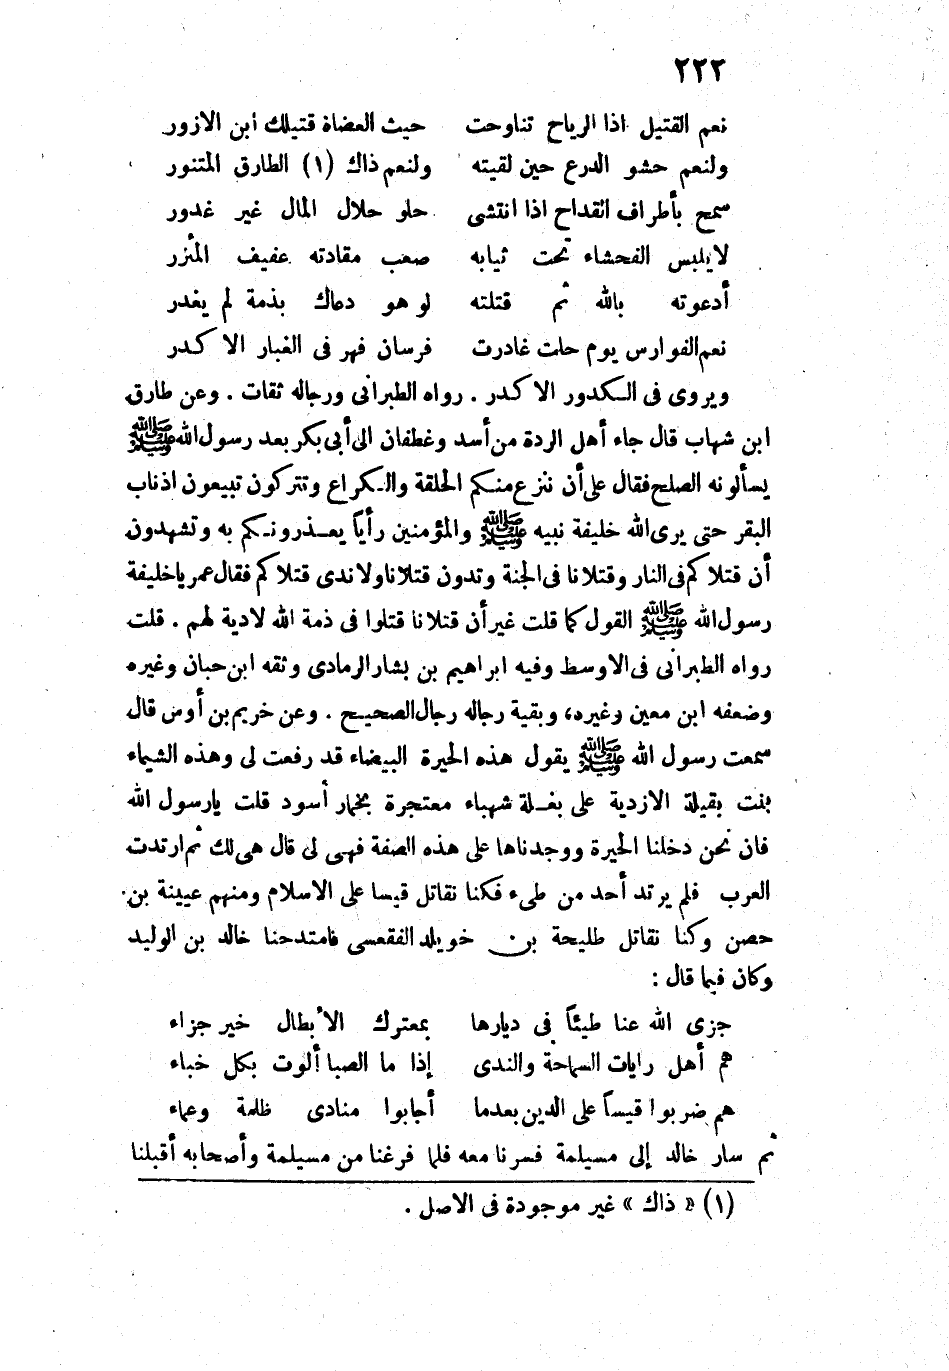 ٢٢٢
نعم القتيل اذا الرياح تناوحت حيث العضاة قتيلك ابن الازور
ولنعم حشو الدرع حين لقيته ولنعم ذاك (١) الطارق المتنور
سمح بأطراف القداح اذا انتشى حلو حلال المال غير غدور
لايلبس الفحشاء تحت ثيابه صعب مقادته عفيف المئزر
أدعوته بالله ثم قتلته لو هو دعاك بذمة لم يغدر
نعم الفوارس يوم حلت غادرت فرسان فهر فى الغبار الاكدر
ويروى فى الكدور الاكدر . رواه الطبرانى ورجاله ثقات . وعن طارق
ابن شهاب قال جاء أهل الردة من أسد وغطفان الى أبى بكر بعد رسول الله ﷺ
يسألونه الصلح فقال على أن ننزع منكم الحلقة والكراع وتتركون تبيعون اذناب
البقر حتى يرى الله خليفة نبيه ﷺ والمؤمنين رأياً يعذرونكم به وتشهدون
أن قتلاكم فى النار وقتلانا فى الجنة وتدون قتلانا ولاندى قتلاكم فقال عمر ياخليفة
رسول الله ﷺ القول كما قلت غير أن قتلانا قتلوا فى ذمة الله لادية لهم . قلت
رواه الطبرانى فى الاوسط وفيه ابراهيم بن بشار الرمادى وثقه ابن حبان وغيره
وضعفه ابن معين وغيره، وبقية رجاله رجال الصحيح . وعن خريم بن أوس قال
سمعت رسول الله ﷺ يقول هذه الحيرة البيضاء قد رفعت لى وهذه الشيماء
بنت بقيلة الازدية على بغلة شهباء معتجرة بخمار أسود قلت يارسول الله
فان نحن دخلنا الحيرة ووجدناها على هذه الصفة فهى لى قال هى لك ثم ارتدت
العرب فلم يرتد أحد من طىء فكنا نقاتل قيسا على الاسلام ومنهم عيينة بن
حصن وكنا نقاتل طليحة بن خويلد الفقعسى فامتدحنا خالد بن الوليد
وكان فيما قال :
جزى الله عنا طيئاً فى ديارها بمعترك الأبطال خير جزاء
هم أهل رايات السماحة والندى إذا ما الصبا ألوت بكل خباء
هم ضربوا قيساً على الدين بعدما أجابوا منادى ظلمة وعماء
ثم سار خالد إلى مسيلمة فسرنا معه فلما فرغنا من مسيلمة وأصحابه أقبلنا
(١) « ذاك » غير موجودة فى الاصل .